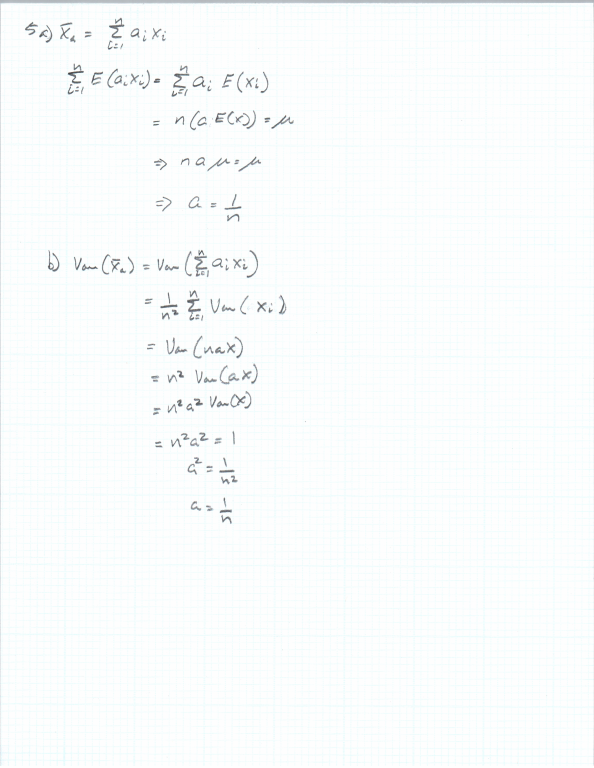 5a) X̄ₐ = Σᵢ₌₁ⁿ aᵢxᵢ
Σᵢ₌₁ⁿ E(aᵢxᵢ) = Σᵢ₌₁ⁿ aᵢ E(xᵢ)
= n(a E(x)) = μ
⇒ n a μ = μ
⇒ a = 1/n
b) Var(X̄ₐ) = Var(Σᵢ₌₁ⁿ aᵢxᵢ)
= 1/n² Σᵢ₌₁ⁿ Var(xᵢ)
= Var(nax)
= n² Var(ax)
= n²a² Var(x)
= n²a² = 1
a² = 1/n²
a = 1/n